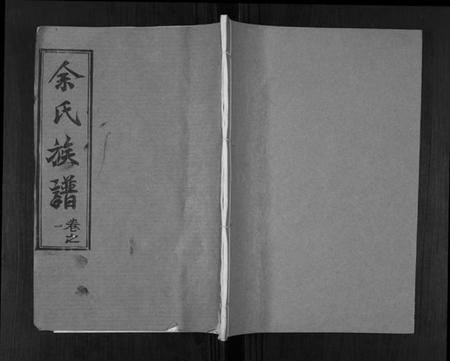 余氏族譜
卷之一